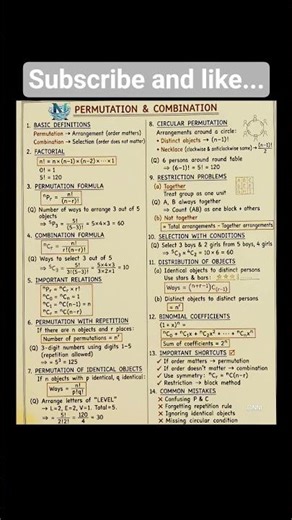 Subscribe and like...
PERMUTATION & COMBINATION
1. BASIC DEFINITIONS
Permutation → Arrangement (order matters)
Combination → Selection (order does not matter)
2. FACTORIAL
n! = n×(n-1)×(n-2)×⋯×1
0! = 1
5! = 120
3. PERMUTATION FORMULA
ⁿPᵣ = n!/(n-r)!
(Q) Number of ways to arrange 3 out of 5
objects
→ ⁵P₃ = 5!/(5-3)! = 5×4×3 = 60
4. COMBINATION FORMULA
ⁿCᵣ = n!/r!(n-r)!
(Q) Ways to select 3 out of 5
→ ⁵C₃ = 5!/3!(5-3)! = 5×4×3/3×2×1 = 10
5. IMPORTANT RELATIONS
ⁿPᵣ = ⁿCᵣ × r!
ⁿC₀ = ⁿCₙ = 1
ⁿC₁ = ⁿC(n-1) = n
ⁿCᵣ = ⁿC(n-r)
6. PERMUTATION WITH REPETITION
If there are n objects and r places:
Number of permutations = nʳ
(Q) 3-digit numbers using digits 1-5
(repetition allowed)
→ = 5³ = 125
7. PERMUTATION OF IDENTICAL OBJECTS
If n objects with p identical, q identical:
Ways = n!/p!q!
(Q) Arrange letters of "LEVEL"
→ L=2, E=2, V=1. Total=5.
→ = 5!/2!2! = 120/4 = 30
8. CIRCULAR PERMUTATION
Arrangements around a circle:
→ Distinct objects → (n-1)!
→ Necklace (clockwise & anticlockwise same) → (n-1)!/2
(Q) 6 persons around round table
→ (6-1)! = 5! = 120
9. RESTRICTION PROBLEMS
(a) Together
Treat group as one unit
(Q) A, B always together
→ Count (AB) as one block + others
(b) Not together
= Total arrangements - Together arrangements
10. SELECTION WITH CONDITIONS
(Q) Select 3 boys & 2 girls from 5 boys, 4 girls
→ ⁵C₃ × ⁴C₂ = 10 × 6 = 60
11. DISTRIBUTION OF OBJECTS
(a) Identical objects to distinct persons
Use stars & bars:
Ways = (n+r-1)C(r-1)
(b) Distinct objects to distinct persons
= rⁿ
12. BINOMIAL COEFFICIENTS
(1+x)ⁿ =
ⁿC₀ + ⁿC₁x + ⁿC₂x² + ⋯ + ⁿCₙxⁿ
Sum of coefficients = 2ⁿ
13. IMPORTANT SHORTCUTS ☑
✓ If order matters → permutation
✓ If order doesn't matter → combination
✓ Use symmetry: ⁿCᵣ = ⁿC(n-r)
✓ Restriction → block method
14. COMMON MISTAKES
✗ Confusing P & C
✗ Forgetting repetition rule
✗ Ignoring identical objects
✗ Missing circular condition